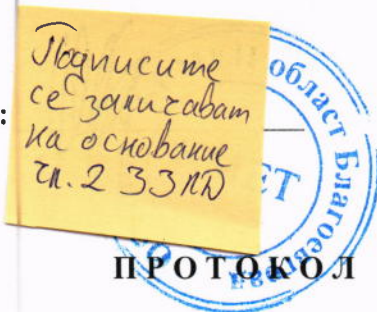 Подписите
се заличават
на основание
чл. 2 ЗЗЛД
:
област Благоевград
ЕТ
ПРОТОКОЛ